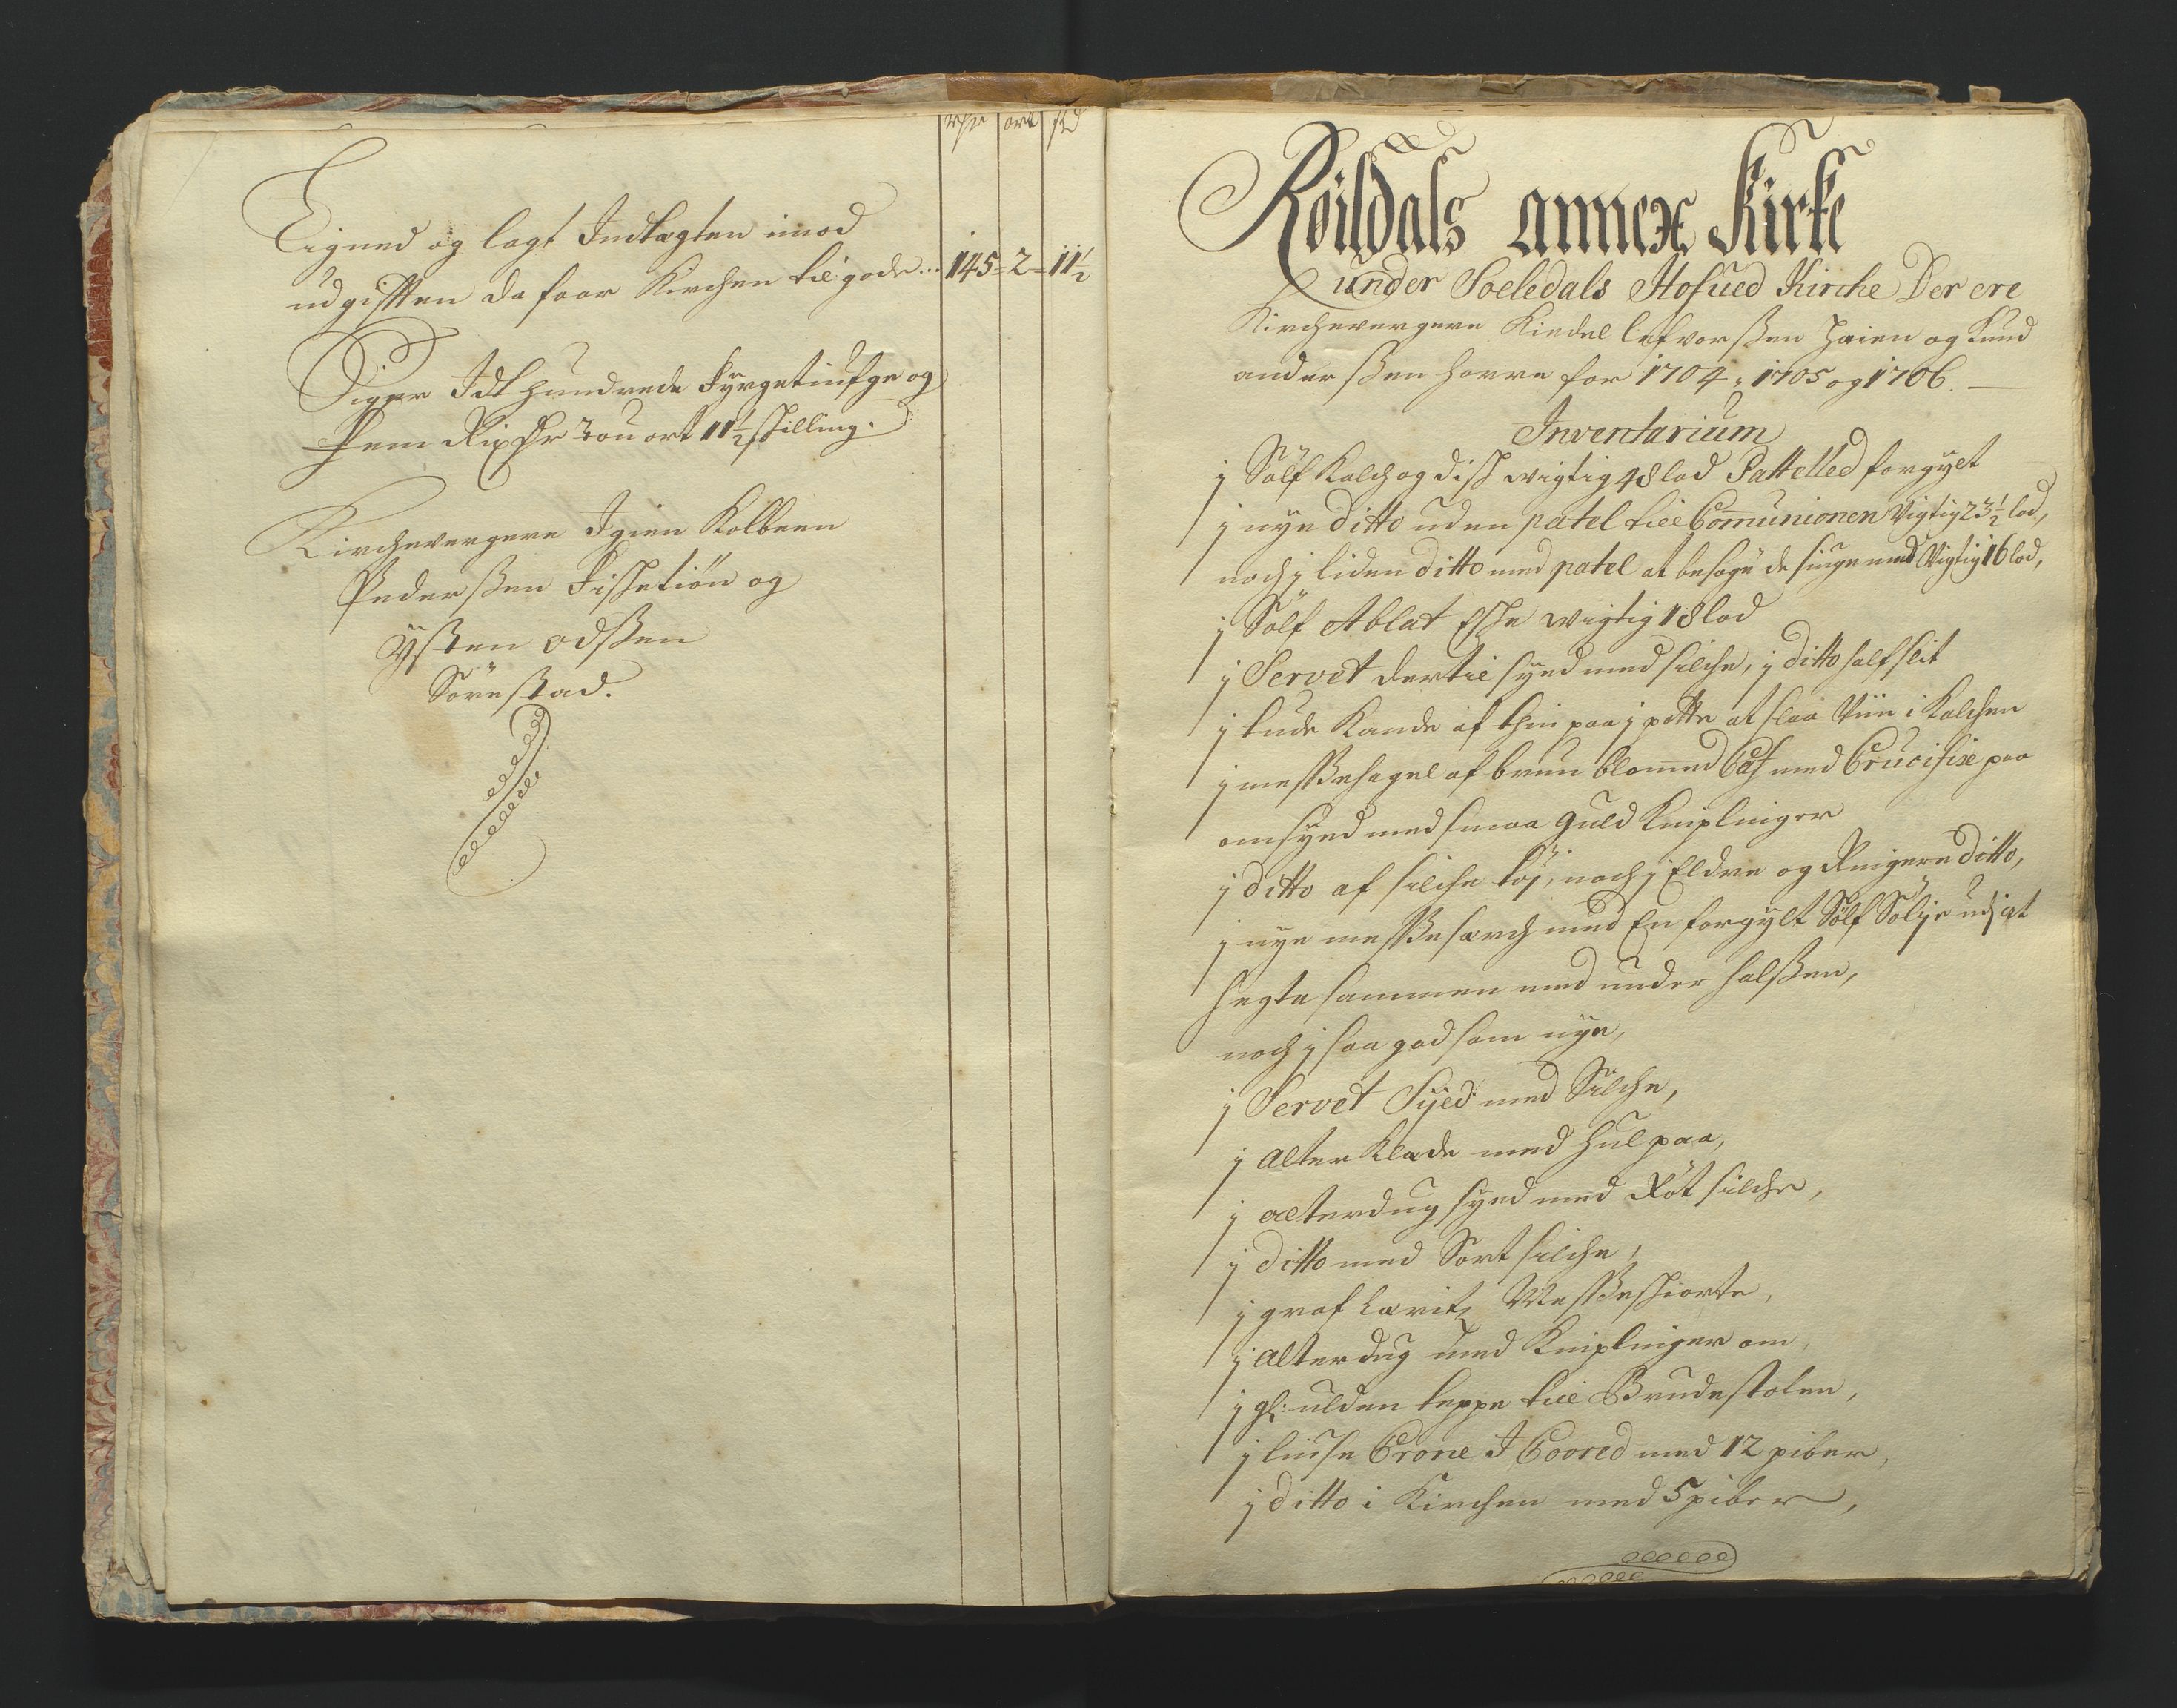 rixdr ort sk
Ligned og lagt Indtægten imod
udgiften da faar Kirchen til gode... 145 = 2 = 11½
Siger Idt hundrede Fyrgetiufge og
Fem Rixdr Tou ort 11½ skilling.
Kirchevergere Igien Kolbeen
Pederssen Fissetiøn og
Østen odssen
Sørestad.
Röildals annex Kirke
under Soeledals Hofued Kirche Der ere
Kirchevergere Kindel Lefvorssen Haien og Knud
anderssen Horre for 1704, 1705 og 1706.
Inventarium
j Sölf Kalch og disch wigtig 48 lod Pattelled forgÿlt
j nÿe ditto uden patel till Communionen Vigtig 23½ lod,
noch j liden ditto med patel at besøge de siuge med Wigtig 16 lod,
j Sölf Ablat Esche wigtig 18 lod
j Servet dertil sÿed med silche, j ditto half slit
j tude Kande af thin paa j potte at slaa Viin i Kalchen
j messehagel af brun blommed Caf med Crucifix paa
omsÿed med smaa guld Kniplinger
j ditto af silche tøj, noch j Eldre og Ringere ditto,
j nÿe messesærch med En forgÿlt Sölf Sølje udj at
hegte sammen med under halssen,
noch j saa god som nÿe,
j Servet Sÿed med Silche,
j alter Klæde med hul paa,
j alterdug sÿed med Røt silche,
j ditto med Sort silche,
j grof Lærits Messeskiorte,
j alterdug med Kniplinger om,
j gl: ulden teppe till Brudestolen,
j liuse Crone I Coored med 12 piber,
j ditto i Kirchen med 5 piber,